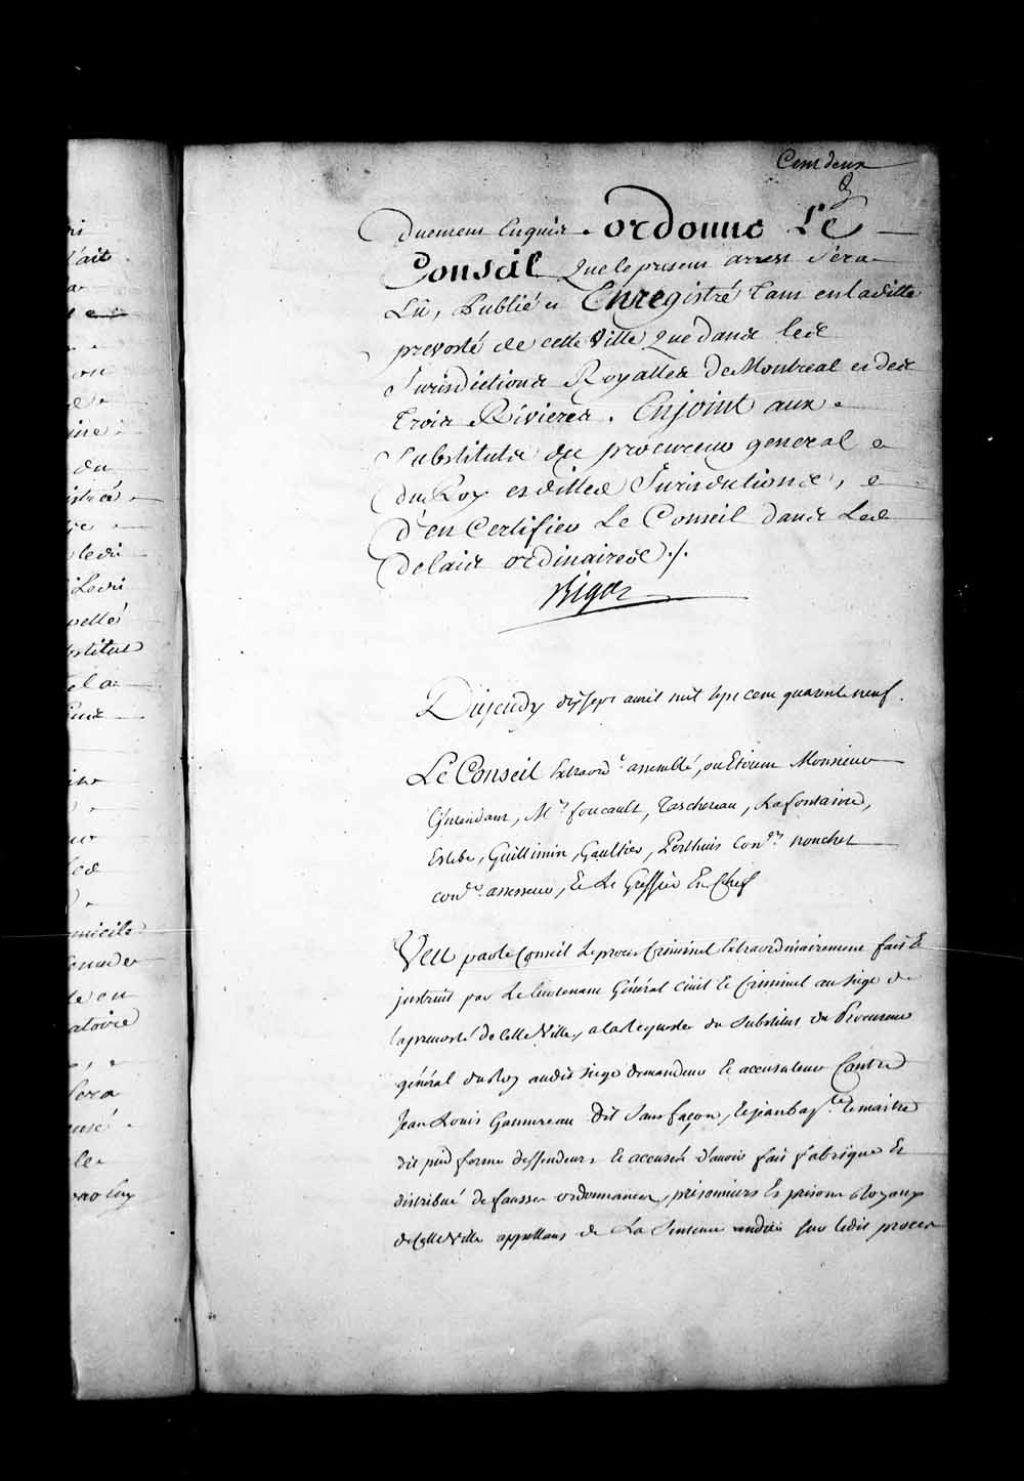 Cent deux
duement Enquis. ordonne Le
Conseil Que le present arrest sera
Lû, Publié et Enregistré Tant en laditte
prevosté de cette Ville Que dans les
Jurisdictions Royalles de Montreal et des
Trois Rivieres. Enjoint aux
Substituts du procureur general
du Roy esdittes Jurisdictions,
d'en Certifier Le Conseil dans Les
delais ordinaires ./.
Bigot
Du jeudy dix sept avril mil sept cent quarante neuf.
Le Conseil Extraord.e assemblé, ou Etoient Monsieur
L'Intendant, Mrs foucault, Taschereau, Lafontaine,
Estebe, Guillimin, Gaultier, Perthuis Con.ers nouchet
con.er assesseur, Et Le Greffier En Chef
Veu par le Conseil Le procès Criminel Extraordinairement fait Et
instruit par Le lieutenant Général Civil Et Criminel au siege de
la prevosté de Cette Ville, a la Requeste du Substitut du Procureur
général du Roy audit siege demandeur Et accusateur Contre
Jean Louis dit Sans façon, Et jean bap.te Le maitre
dit deffendeurs Et accusés d'avoir fait fabriqué Et
distribué de fausses ordonnances, prisonniers Es prisons Royaux
de Cette Ville appellans de La Sentence rendue sur ledit procès
ait
on
du
ledit
Ledit
domicile
sera